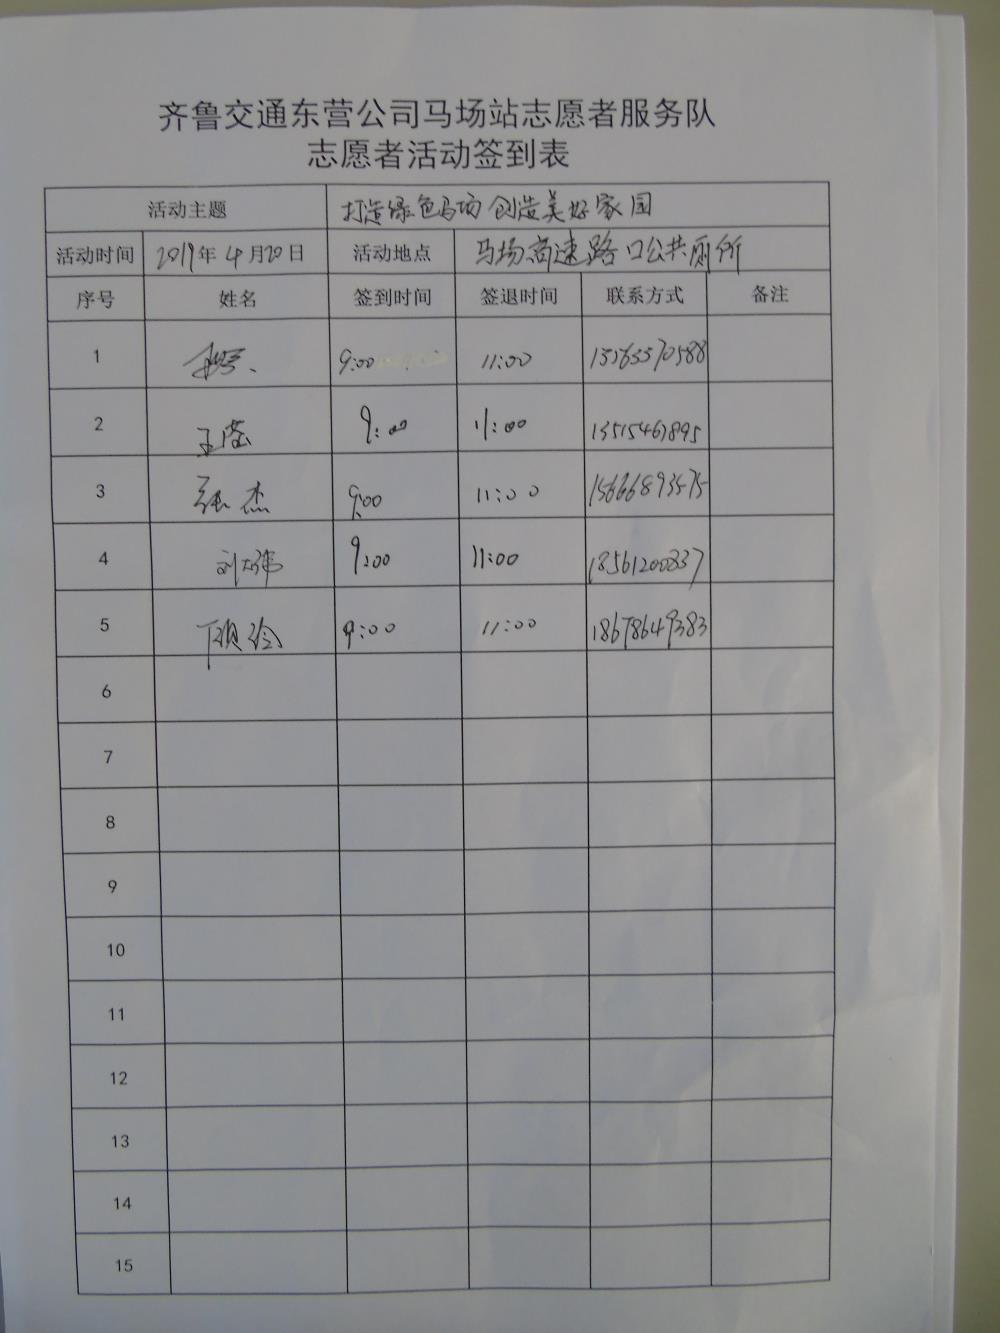 齐鲁交通东营公司马场站志愿者服务队
志愿者活动签到表
活动主题 打造绿色马场 创造美好家园
活动时间 2019年4月20日 活动地点 马场高速路口公共厕所
序号 姓名 签到时间 签退时间 联系方式 备注
1 9:00 11:00 13563370588
2 王莹 9:00 11:00 13515461895
3 张杰 9:00 11:00 15666893575
4 刘大伟 9:00 11:00 18561200837
5 9:00 11:00 18678649383
6
7
8
9
10
11
12
13
14
15